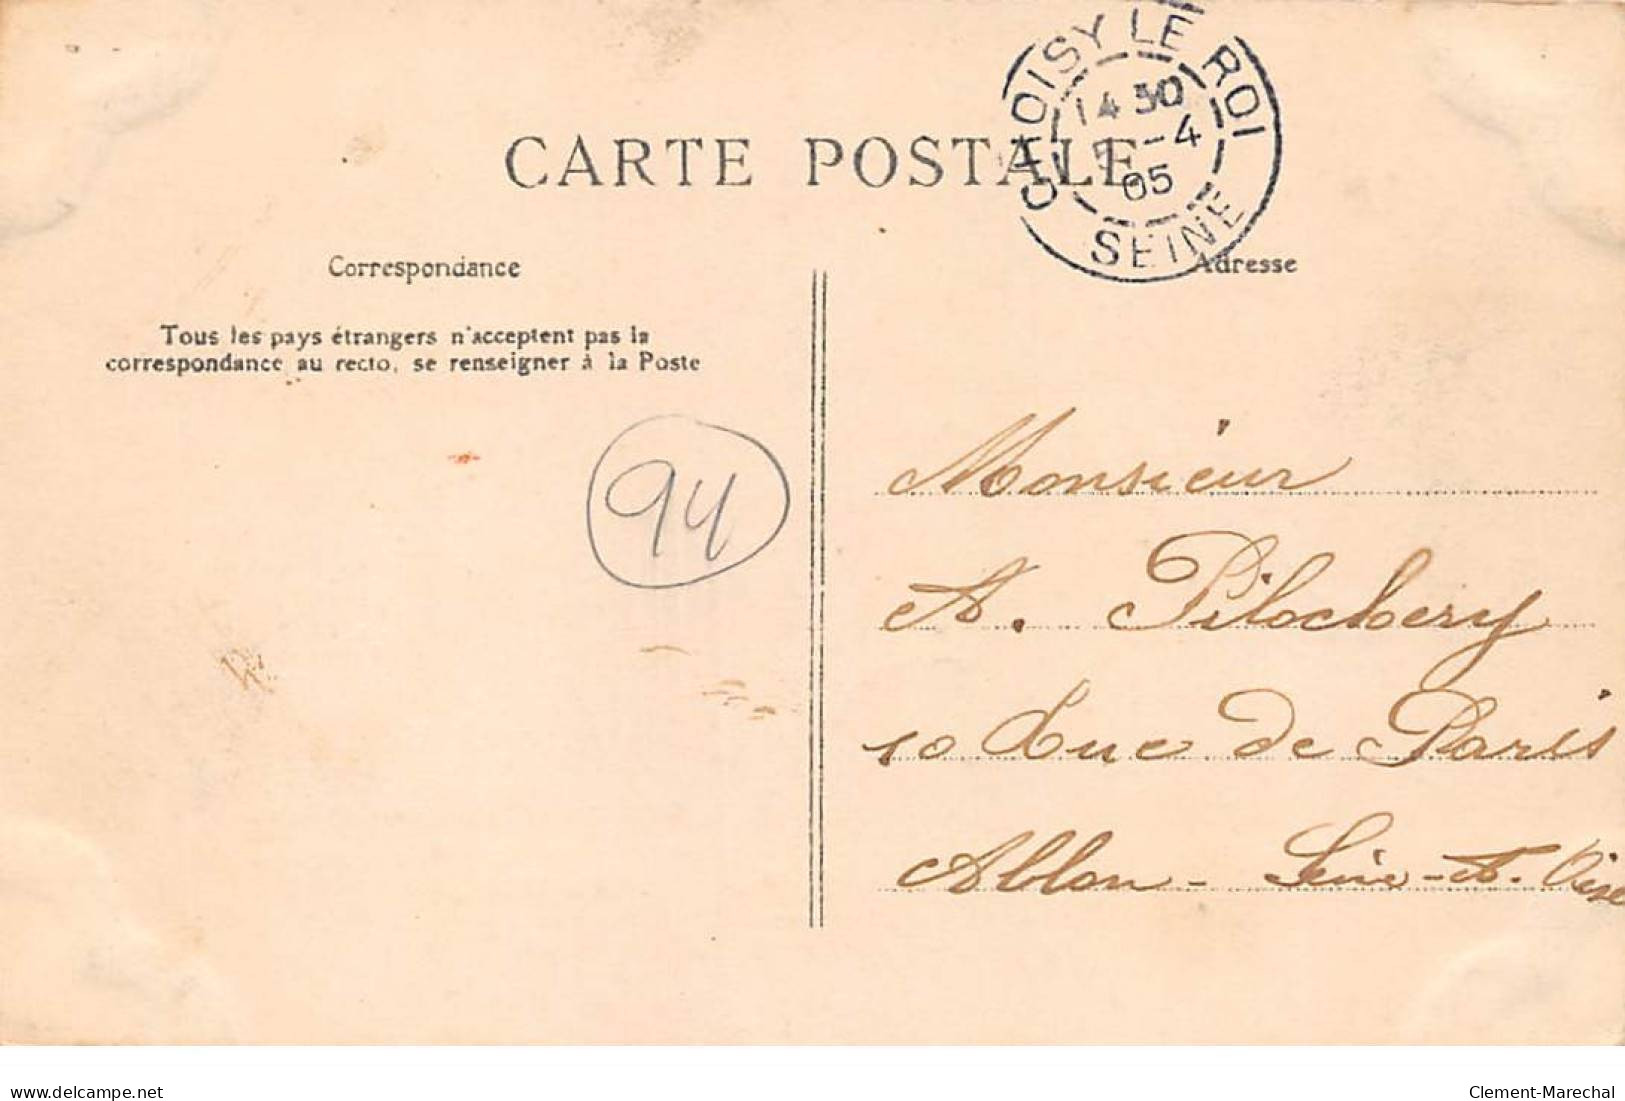 CHOISY LE ROI
14 30
7-4
05
SEINE
CARTE POSTALE
Correspondance
Adresse
Tous les pays étrangers n'acceptent pas la
correspondance au recto, se renseigner à la Poste
94
Monsieur
A. Pilochery
10 Rue de Paris
Ablon - Seine-et-Oise
delcampe.net
Clement-Marechal